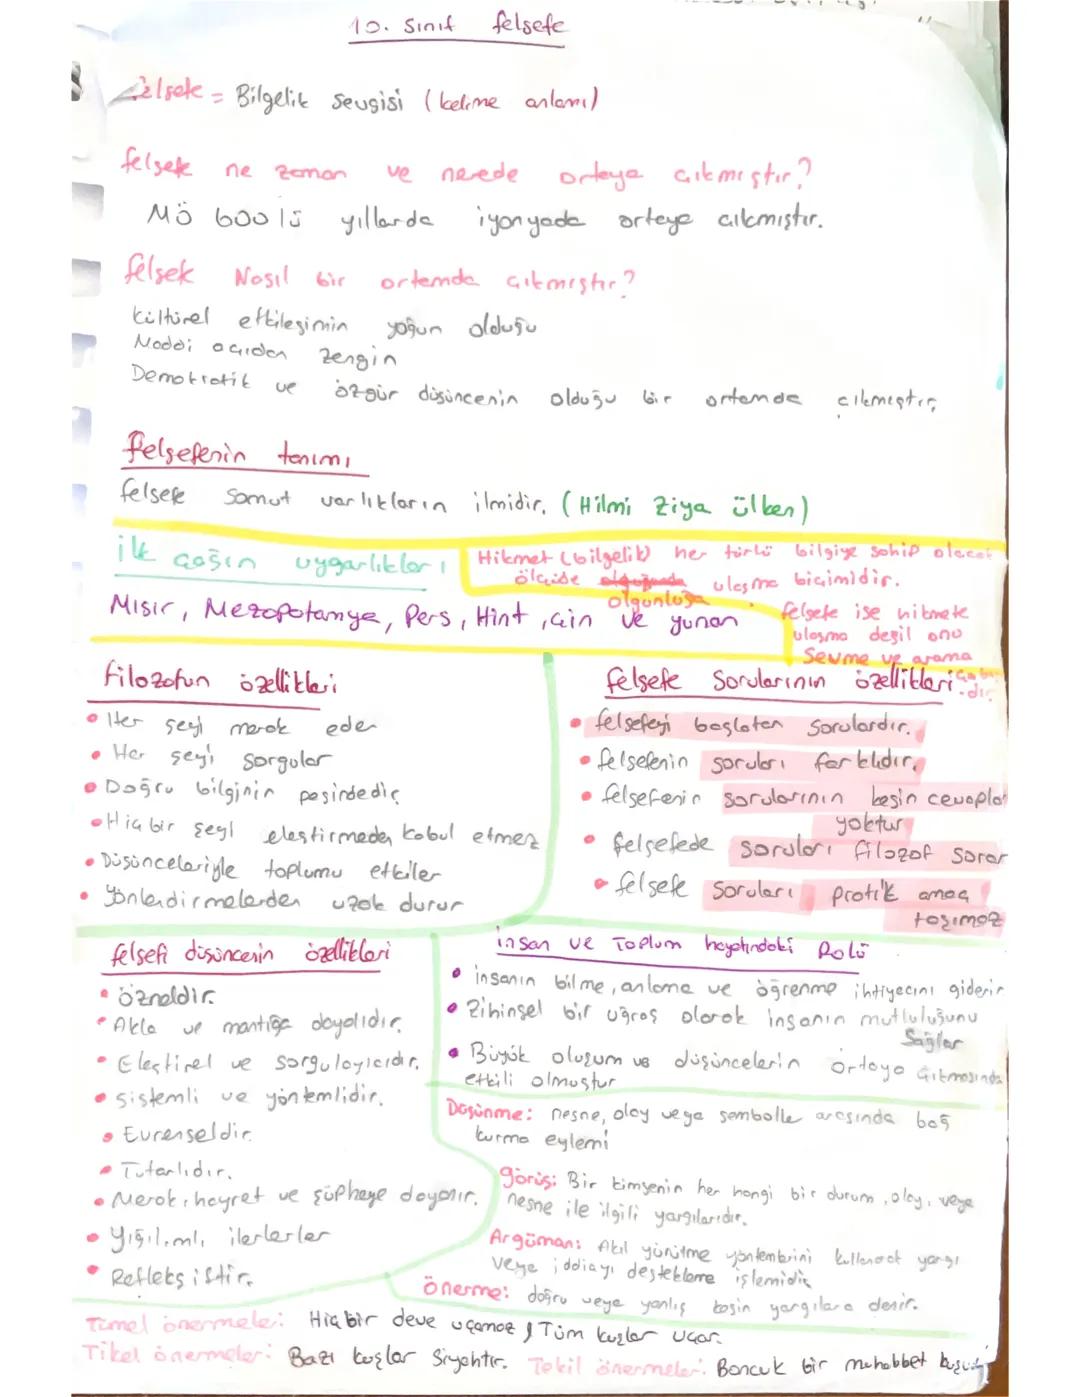 10. Sınıf felsefe
felsefe = Bilgelik sevgisi (kelime anlamı)
felsefe ne zaman ve nerede ortaya çıkmıştır?
MÖ 600 lü yıllarda iyonyada ortaya çıkmıştır.
felsefe Nasıl bir ortamda çıkmıştır?
kültürel etkileşimin yoğun olduğu
Maddi açıdan zengin
Demokratik ve özgür düşüncenin olduğu bir ortamda çıkmıştır.
felsefenin tanımı
felsefe somut varlıkların ilmidir. (Hilmi Ziya ülken)
ilk çağın uygarlıkları
Mısır, Mezopotamya, Pers, Hint, çin ve yunan
Hikmet (bilgelik) her türlü bilgiye sahip olacak
ölçüde olgunluğa ulaşma biçimidir.
felsefe ise hikmete
ulaşma değil onu
Sevme ve arama
çabasıdır.
filozofun özellikleri
• Her şeyi merak eder
• Her şeyi sorgular
• Doğru bilginin peşindedir
• Hiç bir şeyi eleştirmeden kabul etmez
• Düşünceleriyle toplumu etkiler
• Yönlendirmelerden uzak durur
felsefe Sorularının özellikleri
• felsefeyi başlatan sorulardır.
• felsefenin soruları farklıdır.
• felsefenin sorularının kesin cevapları
yoktur
• felsefede soruları filozof sorar
• felsefe soruları pratik amaç
taşımaz
felsefi düşüncenin özellikleri
• özneldir.
• Akla ve mantığa dayalıdır.
• Eleştirel ve sorgulayıcıdır.
• sistemli ve yöntemlidir.
• Evrenseldir.
• Tutarlıdır.
• Merak, hayret ve şüpheye dayanır.
• Yığılımlı ilerlerler
• Refleksiftir.
insan ve Toplum hayatındaki Rolü
• insanın bilme, anlama ve öğrenme ihtiyacını giderir
• Zihinsel bir uğraş olarak insanın mutluluğunu
Sağlar
• Büyük oluşum ve düşüncelerin ortaya çıkmasında
etkili olmuştur
Düşünme: nesne, olay veya sembolle arasında bağ
kurma eylemi
görüş: Bir kimsenin her hangi bir durum, olay, veya
nesne ile ilgili yargılarıdır.
Argüman: Akıl yürütme yöntemlerini kullanarak yargı
veya iddiayı destekleme işlemidir
önerme: doğru veya yanlış kesin yargılara denir.
Tümel önermeler: Hiçbir deve uçamaz, Tüm kuşlar uçar.
Tikel önermeler: Bazı kuşlar siyahtır. Tekil önermeler: Boncuk bir muhabbet kuşudur